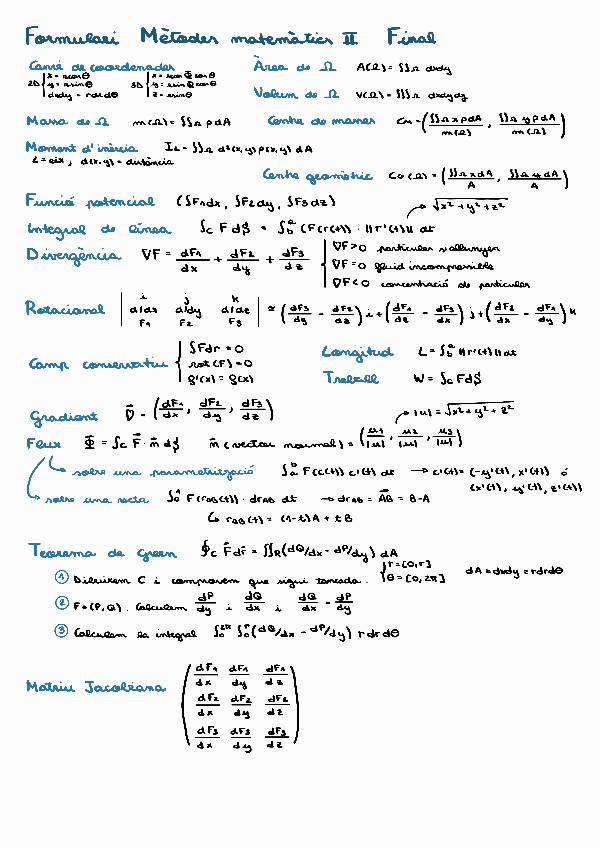 Formulari Mètodes matemàtics II Final
Canvi de coordenades
2D { x = rcosθ
y = rsinθ
dxdy = rdrdθ
3D { x = rcosφcosθ
y = rsinφcosθ
z = rsinθ
Àrea de Ω A(Ω) = ∬Ω dxdy
Volum de Ω V(Ω) = ∭Ω dxdydz
Massa de Ω m(Ω) = ∬Ω ρdA
Centre de masses CM = (∬Ω xρdA / m(Ω), ∬Ω yρdA / m(Ω))
Moment d'inèrcia IL = ∬Ω d²(x,y)ρ(x,y) dA
L = eix, d(x,y) = distància
Centre geomètric CG(Ω) = (∬Ω xdA / A, ∬Ω ydA / A)
Funció potencial (∫F1dx, ∫F2dy, ∫F3dz)
√x²+y²+z²
Integral de línea ∫c F dS = ∫ᵃb (F(r(t)) · ||r'(t)|| dt
Divergència ∇F = dF1/dx + dF2/dy + dF3/dz
∇F>0 partícules s'allunyen
∇F=0 fluid incompressible
∇F<0 concentració de partícules
Rotacional | i j k
d/dx d/dy d/dz
F1 F2 F3 | = (dF3/dy - dF2/dz) i + (dF1/dz - dF3/dx) j + (dF2/dx - dF1/dy) k
Camp conservatiu { ∫Fdr = 0
rot(F) = 0
g'(x) = g(x)
Longitud L = ∫ᵃb ||r'(t)||dt
Treball W = ∫c FdS
Gradient ∇ = (dF1/dx, dF2/dy, dF3/dz)
|u| = √x²+y²+z²
Flux Φ = ∫c F · n dS n (vector normal) = (u1/|u|, u2/|u|, u3/|u|)
sobre una parametrització ∫ᵃb F(c(t)) c'(t) dt → c'(t) = (-y'(t), x'(t)) ó
(x'(t), y'(t), z'(t))
sobre una recta ∫¹0 F(rAB(t)) · drAB dt → drAB = AB = B-A
↳ rAB(t) = (1-t)A + tB
Teorema de Green ∮c F dr = ∬R (dQ/dx - dP/dy) dA
① Dibuixem C i comprovem que sigui tancada. { r = [0,r]
θ = [0,2π]
dA = dxdy = rdrdθ
② F = (P,Q). Calculem dP/dy i dQ/dx i dQ/dx - dP/dy
③ Calculem la integral ∫2π0 ∫r0 (dQ/dx - dP/dy) rdrdθ
Matriu Jacobiana
( dF1/dx dF1/dy dF1/dz
dF2/dx dF2/dy dF2/dz
dF3/dx dF3/dy dF3/dz )